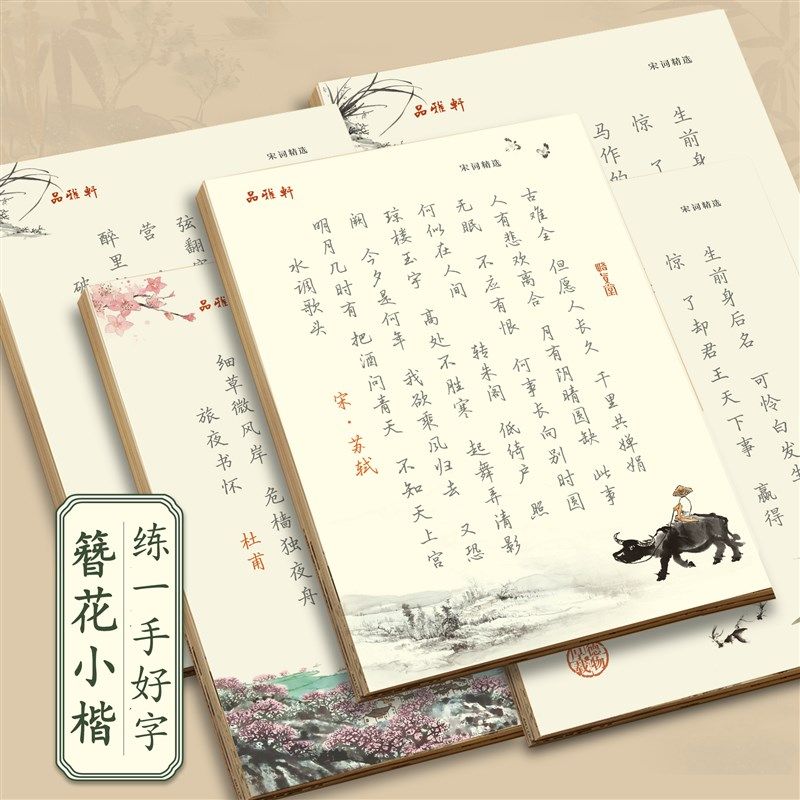 宋词精选
品雅轩
水调歌头 宋·苏轼
明月几时有 把酒问青天 不知天上宫
阙 今夕是何年 我欲乘风归去 又恐
琼楼玉宇 高处不胜寒 起舞弄清影
何似在人间 转朱阁 低倚户 照
无眠 不应有恨 何事长向别时圆
人有悲欢离合 月有阴晴圆缺 此事
古难全 但愿人长久 千里共婵娟
宋词精选
品雅轩
醉里
营
弦翻
破
品雅
旅夜书怀 杜甫
细草微风岸 危樯独夜舟
宋词精选
品雅轩
马作的
惊 了
生前身
宋词精选
惊 了却君王天下事 赢得
生前身后名 可怜白发生
练一手好字
簪花小楷